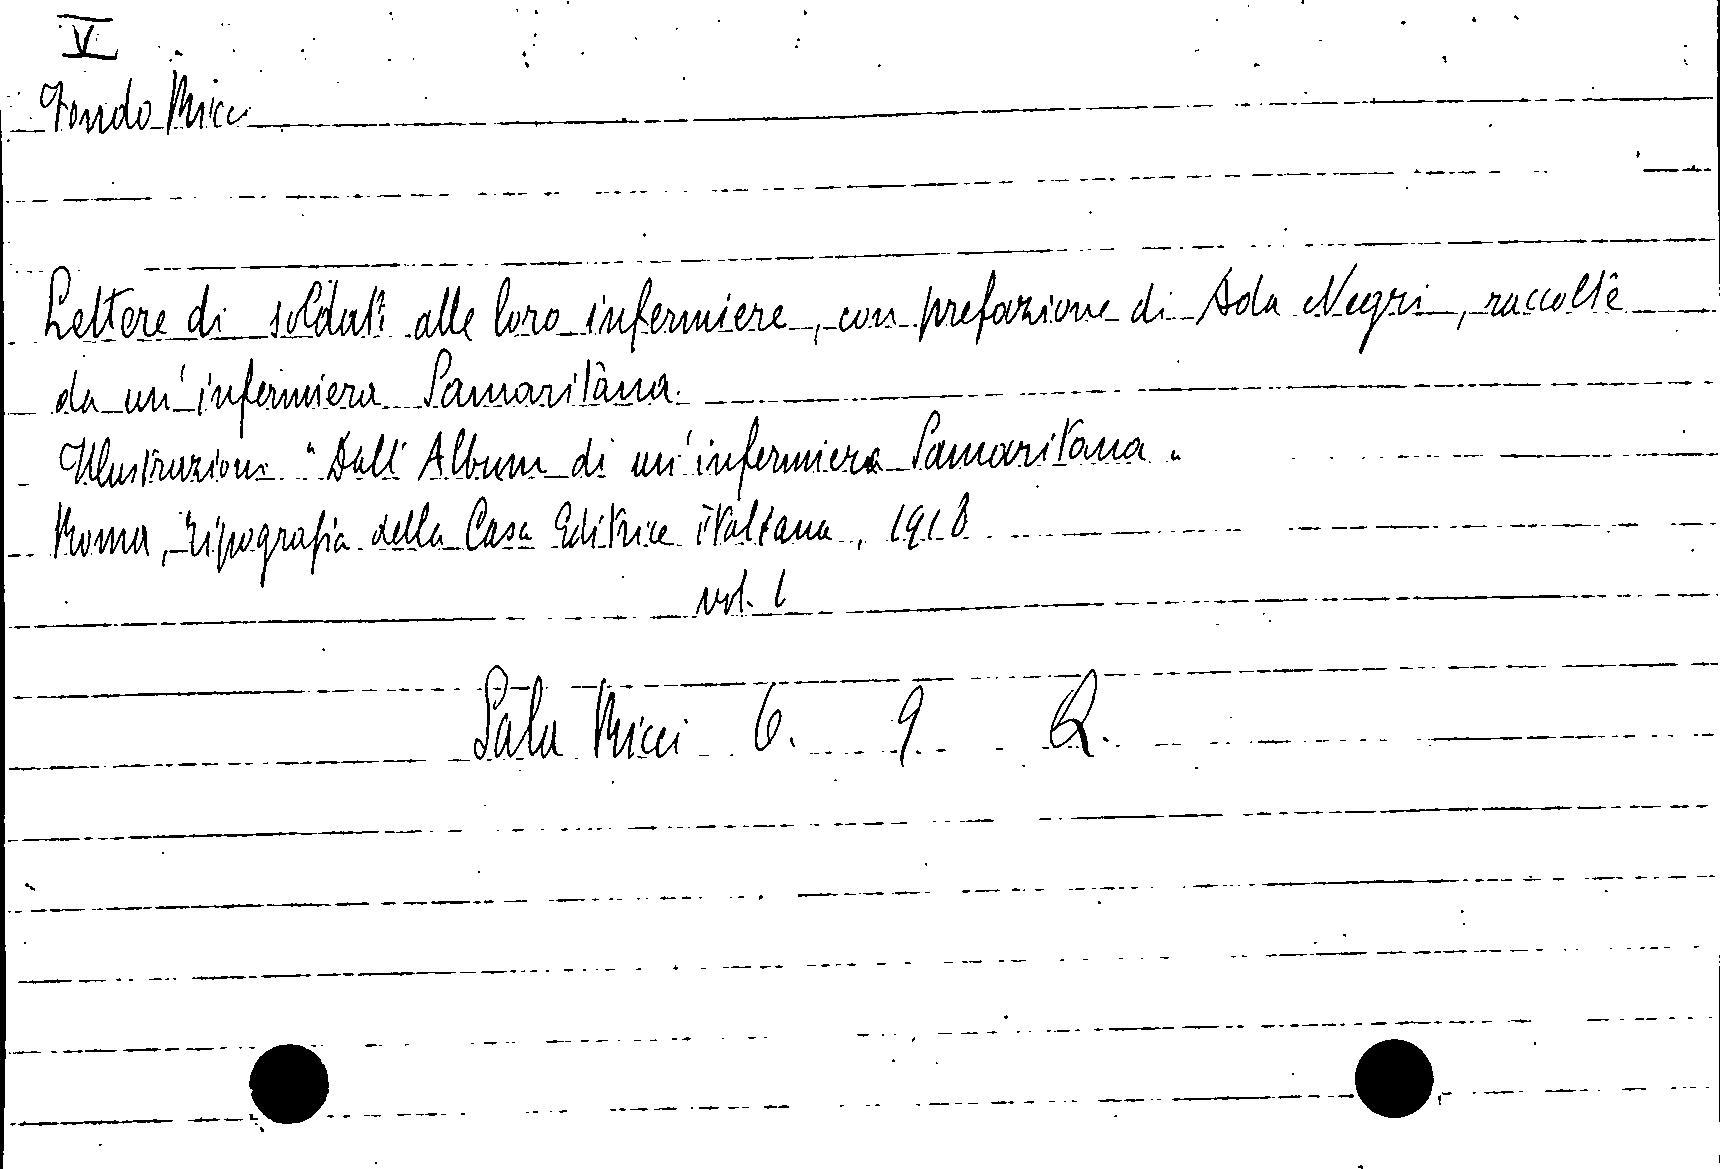 V
Fondo Ricci
Lettere di soldati alle loro infermiere, con prefazione di Ada Negri, raccolte
da un'infermiera Samaritana.
Illustrazioni "Dall'Album di un'infermiera Samaritana"
Roma, Tipografia della Casa Editrice italiana, 1918
vol. 1
Sala Ricci 6. 9 Q.